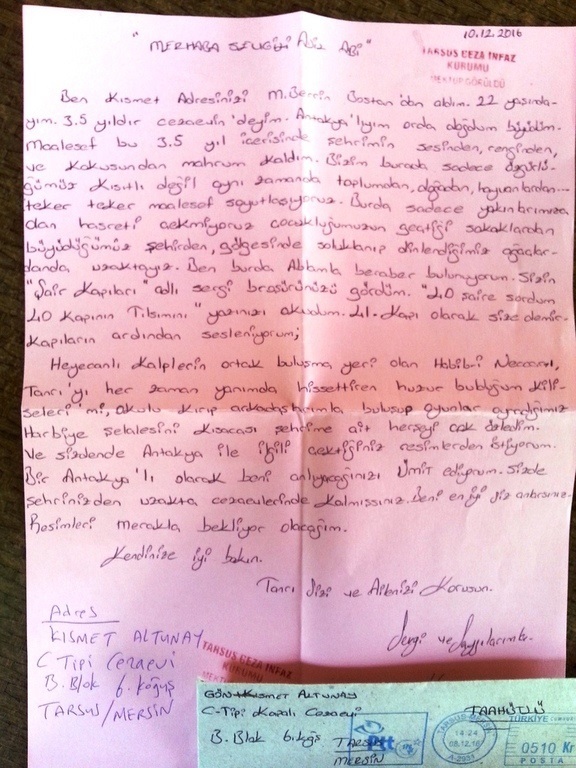 10.12.2016
"MERHABA SEVGİLİ Aziz Abi"
TARSUS CEZA İNFAZ
KURUMU
MEKTUP GÖRÜLDÜ
Ben Kısmet Adresinizi M. Berrin Bostan'dan aldım. 22 yaşında-
yım. 3.5 yıldır cezaevin'deyim. Antakya'lıyım orda doğdum büyüdüm.
Maalesef bu 3.5 yıl içerisinde şehrimin sesinden, renginden,
ve kokusundan mahrum kaldım. Bizim burada sadece özgürlü-
ğümüz kısıtlı değil aynı zamanda toplumdan, doğadan, hayvanlardan...
teker teker maalesef soyutlaşıyoruz. Burda sadece yakınlarımıza
olan hasreti çekmiyoruz çocukluğumuzun geçtiği sokaklardan
büyüdüğümüz şehirden, gölgesinde dinlendiğimiz ağaçlar-
danda uzaktayız. Ben burda Ablamla beraber bulunuyorum. Sizin
"Şair Kapıları" adlı sergi broşürünüzü gördüm. "40 şaire sordum
40 Kapının Tılsımını" yazınızı okudum. 41. Kapı olarak size demir-
kapıların ardından sesleniyorum;
Heyecanlı Kalplerin ortak buluşma yeri olan Habibi Neccar'ı,
Tanrı'yı her zaman yanımda hissettiren huzur bulduğum kili-
seleri'mi, okulu kırıp arkadaşlarımla buluşup oyunlar oynadığımız
Harbiye şelalesini kısacası şehrime ait herşeyi çok özledim.
Ve sizdende Antakya ile ilgili çektiğiniz resimlerden istiyorum.
Bir Antakya'lı olarak beni anlıyacağınızı Ümit ediyorum. Sizde
şehrinizden uzakta cezaevlerinde kalmışsınız. Beni en iyi siz anlarsınız.
Resimleri merakla bekliyor olacağım.
Kendinize iyi bakın.
Tanrı Sizi ve Ailenizi Korusun.
Sevgi ve Saygılarımla.
Adres
KISMET ALTUNAY
C Tipi Cezaevi
B. Blok 6. koğuş
TARSUS/MERSİN
TARSUS CEZA İNFAZ
KURUMU
GÖN: Kısmet ALTUNAY
C-Tipi Kapalı Cezaevi
B. Blok 6. kğş
TARSUS
MERSİN
TAAHÜTLÜ
Ptt
14:24
08.12.16
TÜRKİYE
0510 Kr
POSTA